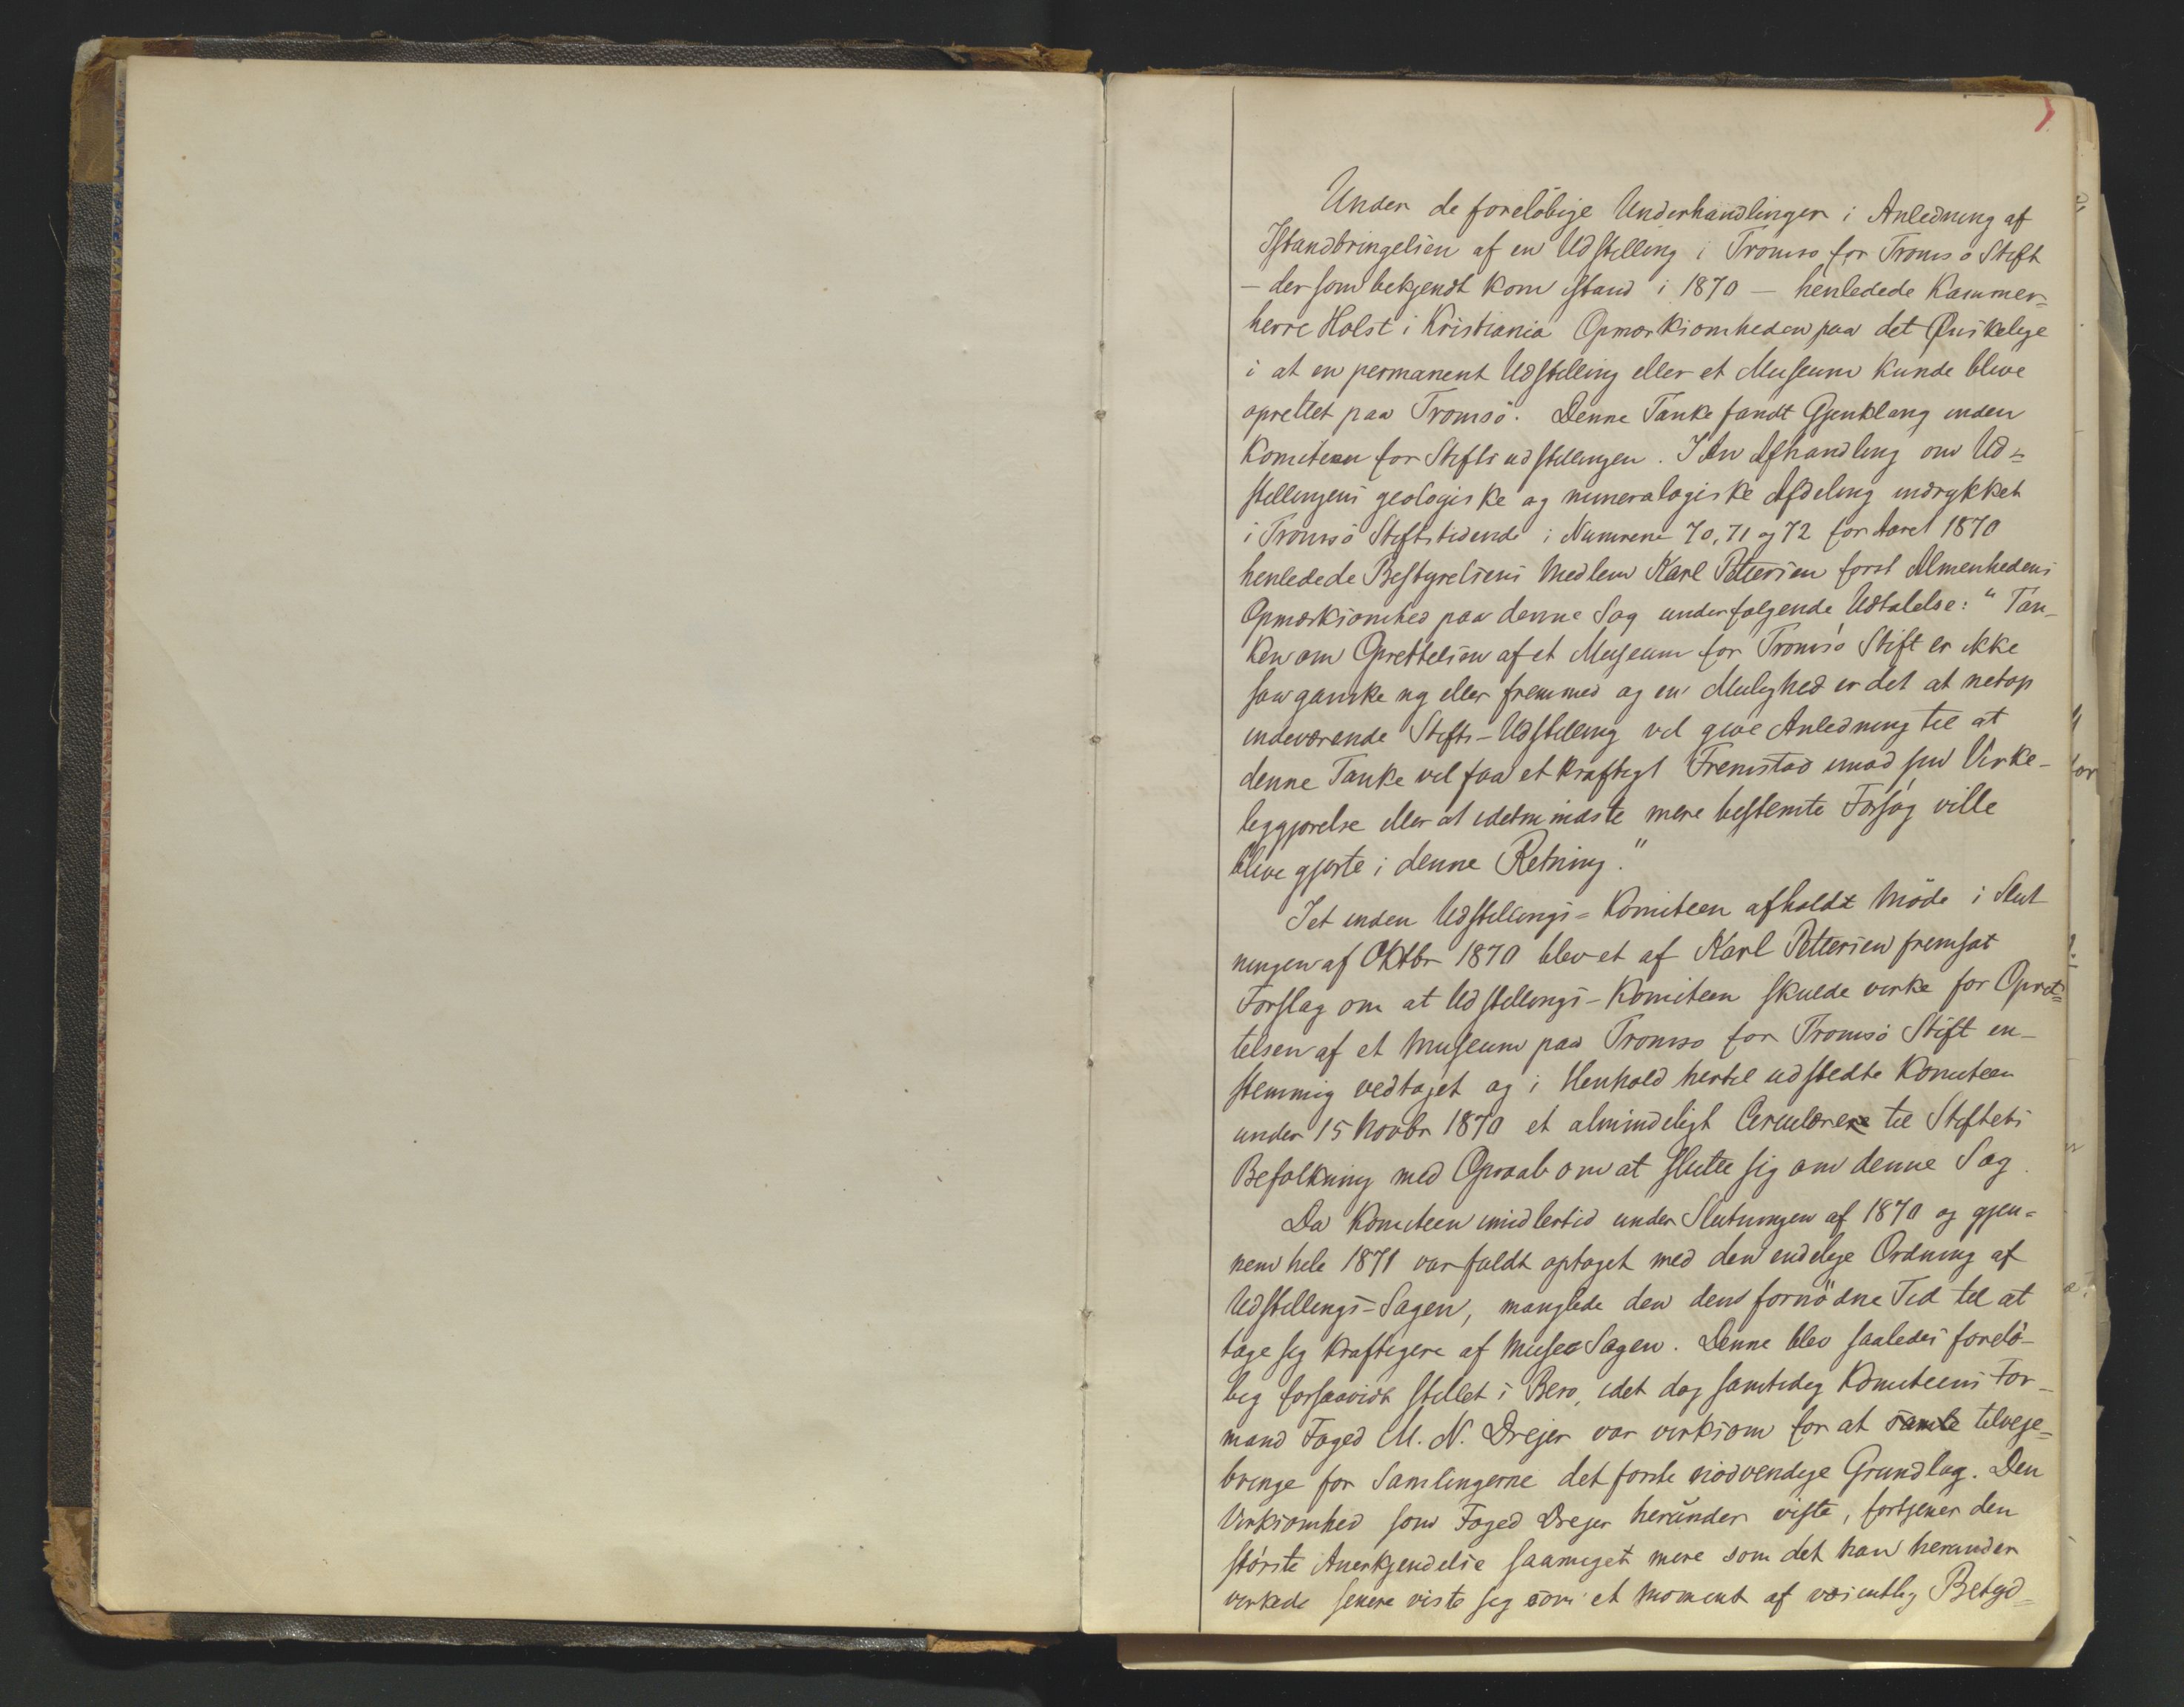 1.
Under de foreløbige Underhandlinger i Anledning af
Istandbringelsen af en Udstilling i Tromsø for Tromsø Stift
– der som bekjendt kom istand i 1870 – henledede Kammer=
herre Holst i Kristiania Opmærksomheden paa det Ønskelige
i at en permanent Udstilling eller et Museum kunde blive
oprettet paa Tromsö. Denne Tanke fandt Gjenklang inden
Komiteen for Stiftsudstillingen. I en Afhandling om Ud=
stillingens geologiske og mineralogiske Afdeling indrykket
i Tromsö Stiftstidende i Numrene 70, 71 og 72 for Aaret 1870
henledede Bestyrelsens Medlem Karl Pettersen først Almenhedens
Opmærksomhed paa denne Sag under følgende Udtalelse: "Tan-
ken om Oprettelsen af et Museum for Tromsö Stift er ikke
saa ganske ny eller fremmed og en Mulighed er det at netop
indeværende Stifts-Udstilling vil give Anledning til at
denne Tanke vil faa et kraftigt Fremstød imod sin Virke-
liggjørelse eller at idetmindste mere bestemte Forsøg ville
blive gjorte i denne Retning."
I et inden Udstillings=Komiteen afholdt Möde i Slut
ningen af Oktbr 1870 blev et af Karl Pettersen fremsat
Forslag om at Udstillings-Komiteen skulde virke for Opret=
telsen af et Museum paa Tromsø for Tromsö Stift en-
stemmig vedtaget og i Henhold hertil udstedte Komiteen
under 15 Novbr 1870 et almindeligt Cirkulære til Stiftets
Befolkning med Opraab om at slutte sig om denne Sag.
Da Komiteen imidlertid under Slutningen af 1870 og gjen=
nem hele 1871 var fuldt optaget med den endelige Ordning af
Udstillings-Sagen, manglede den den fornödne Tid til at
tage sig kraftigere af Musee Sagen. Denne blev saaledes forelö-
big forsaavidt stillet i Bero, idet dog samtidig Komiteens For-
mand Foged M. N. Drejer var virksom for at samle tilveje=
bringe for Samlingerne det første nødvendige Grundlag. Den
Virksomhed som Foged Drejer herunder viste, fortjener den
störste Anerkjendelse saameget mere som det han herunder
virkede senere viste sig som et Moment af væsentlig Betyd=